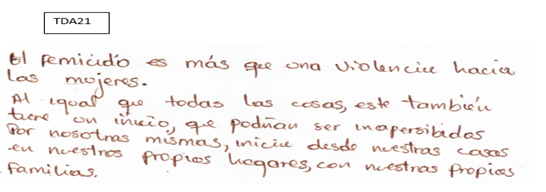 TDA21
El femicidio es más que una violencia hacia
las mujeres.
Al igual que todas las cosas, este también
tiene un inicio, que podrían ser inapersibidas
Por nosotras mismas, inicia desde nuestras casas
en nuestros propios hogares, con nuestras propias
familias.